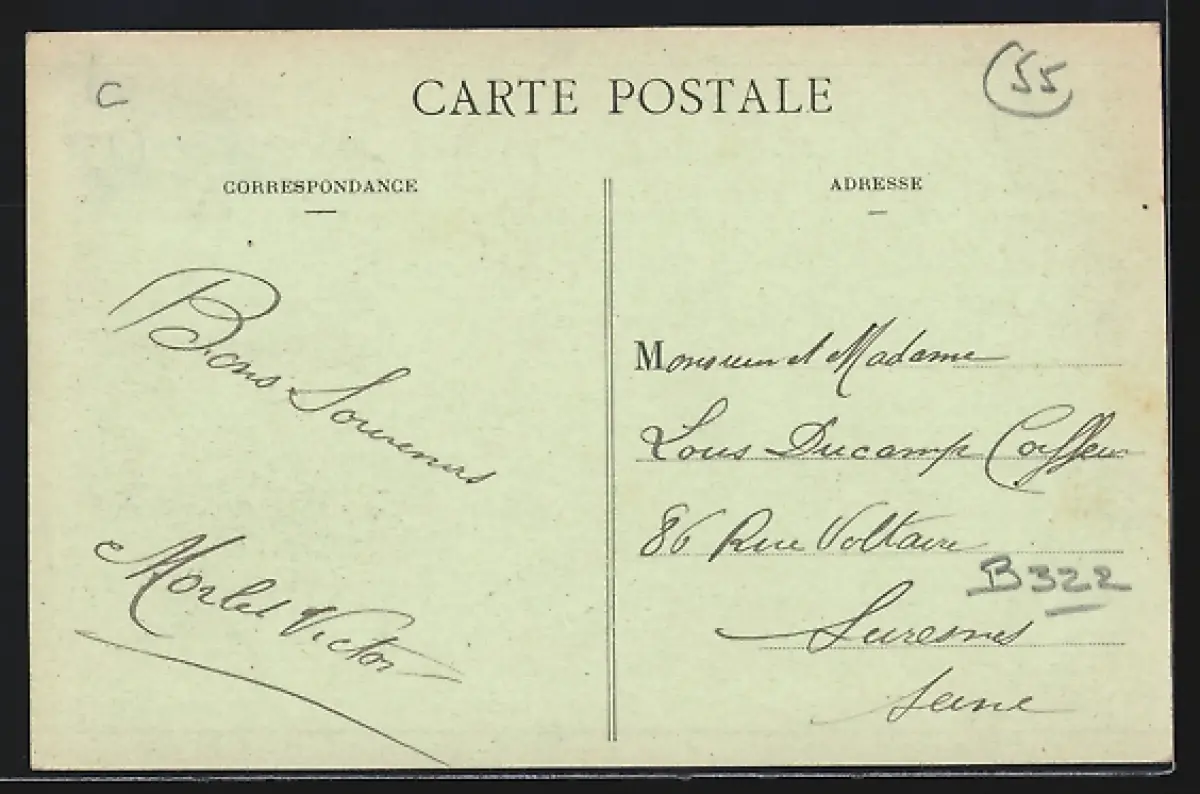 C
55
CARTE POSTALE
CORRESPONDANCE
Bons Souvenirs
Morlet Victor
ADRESSE
Monsieur et Madame
Louis Ducamp Coiffeur
86 Rue Voltaire
B322
Suresnes
Seine